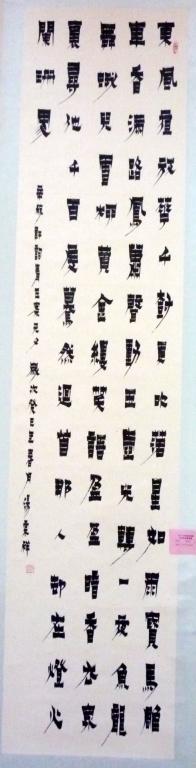 東風夜放華千樹更吹落星如雨寶馬雕
車香滿路鳳簫聲動玉壺光轉一夜魚龍
舞蛾兒雪柳黃金縷笑語盈盈暗香去衆
裏尋他千百度驀然迴首那人卻在燈火
闌珊處
青玉案元夕 歲次癸巳